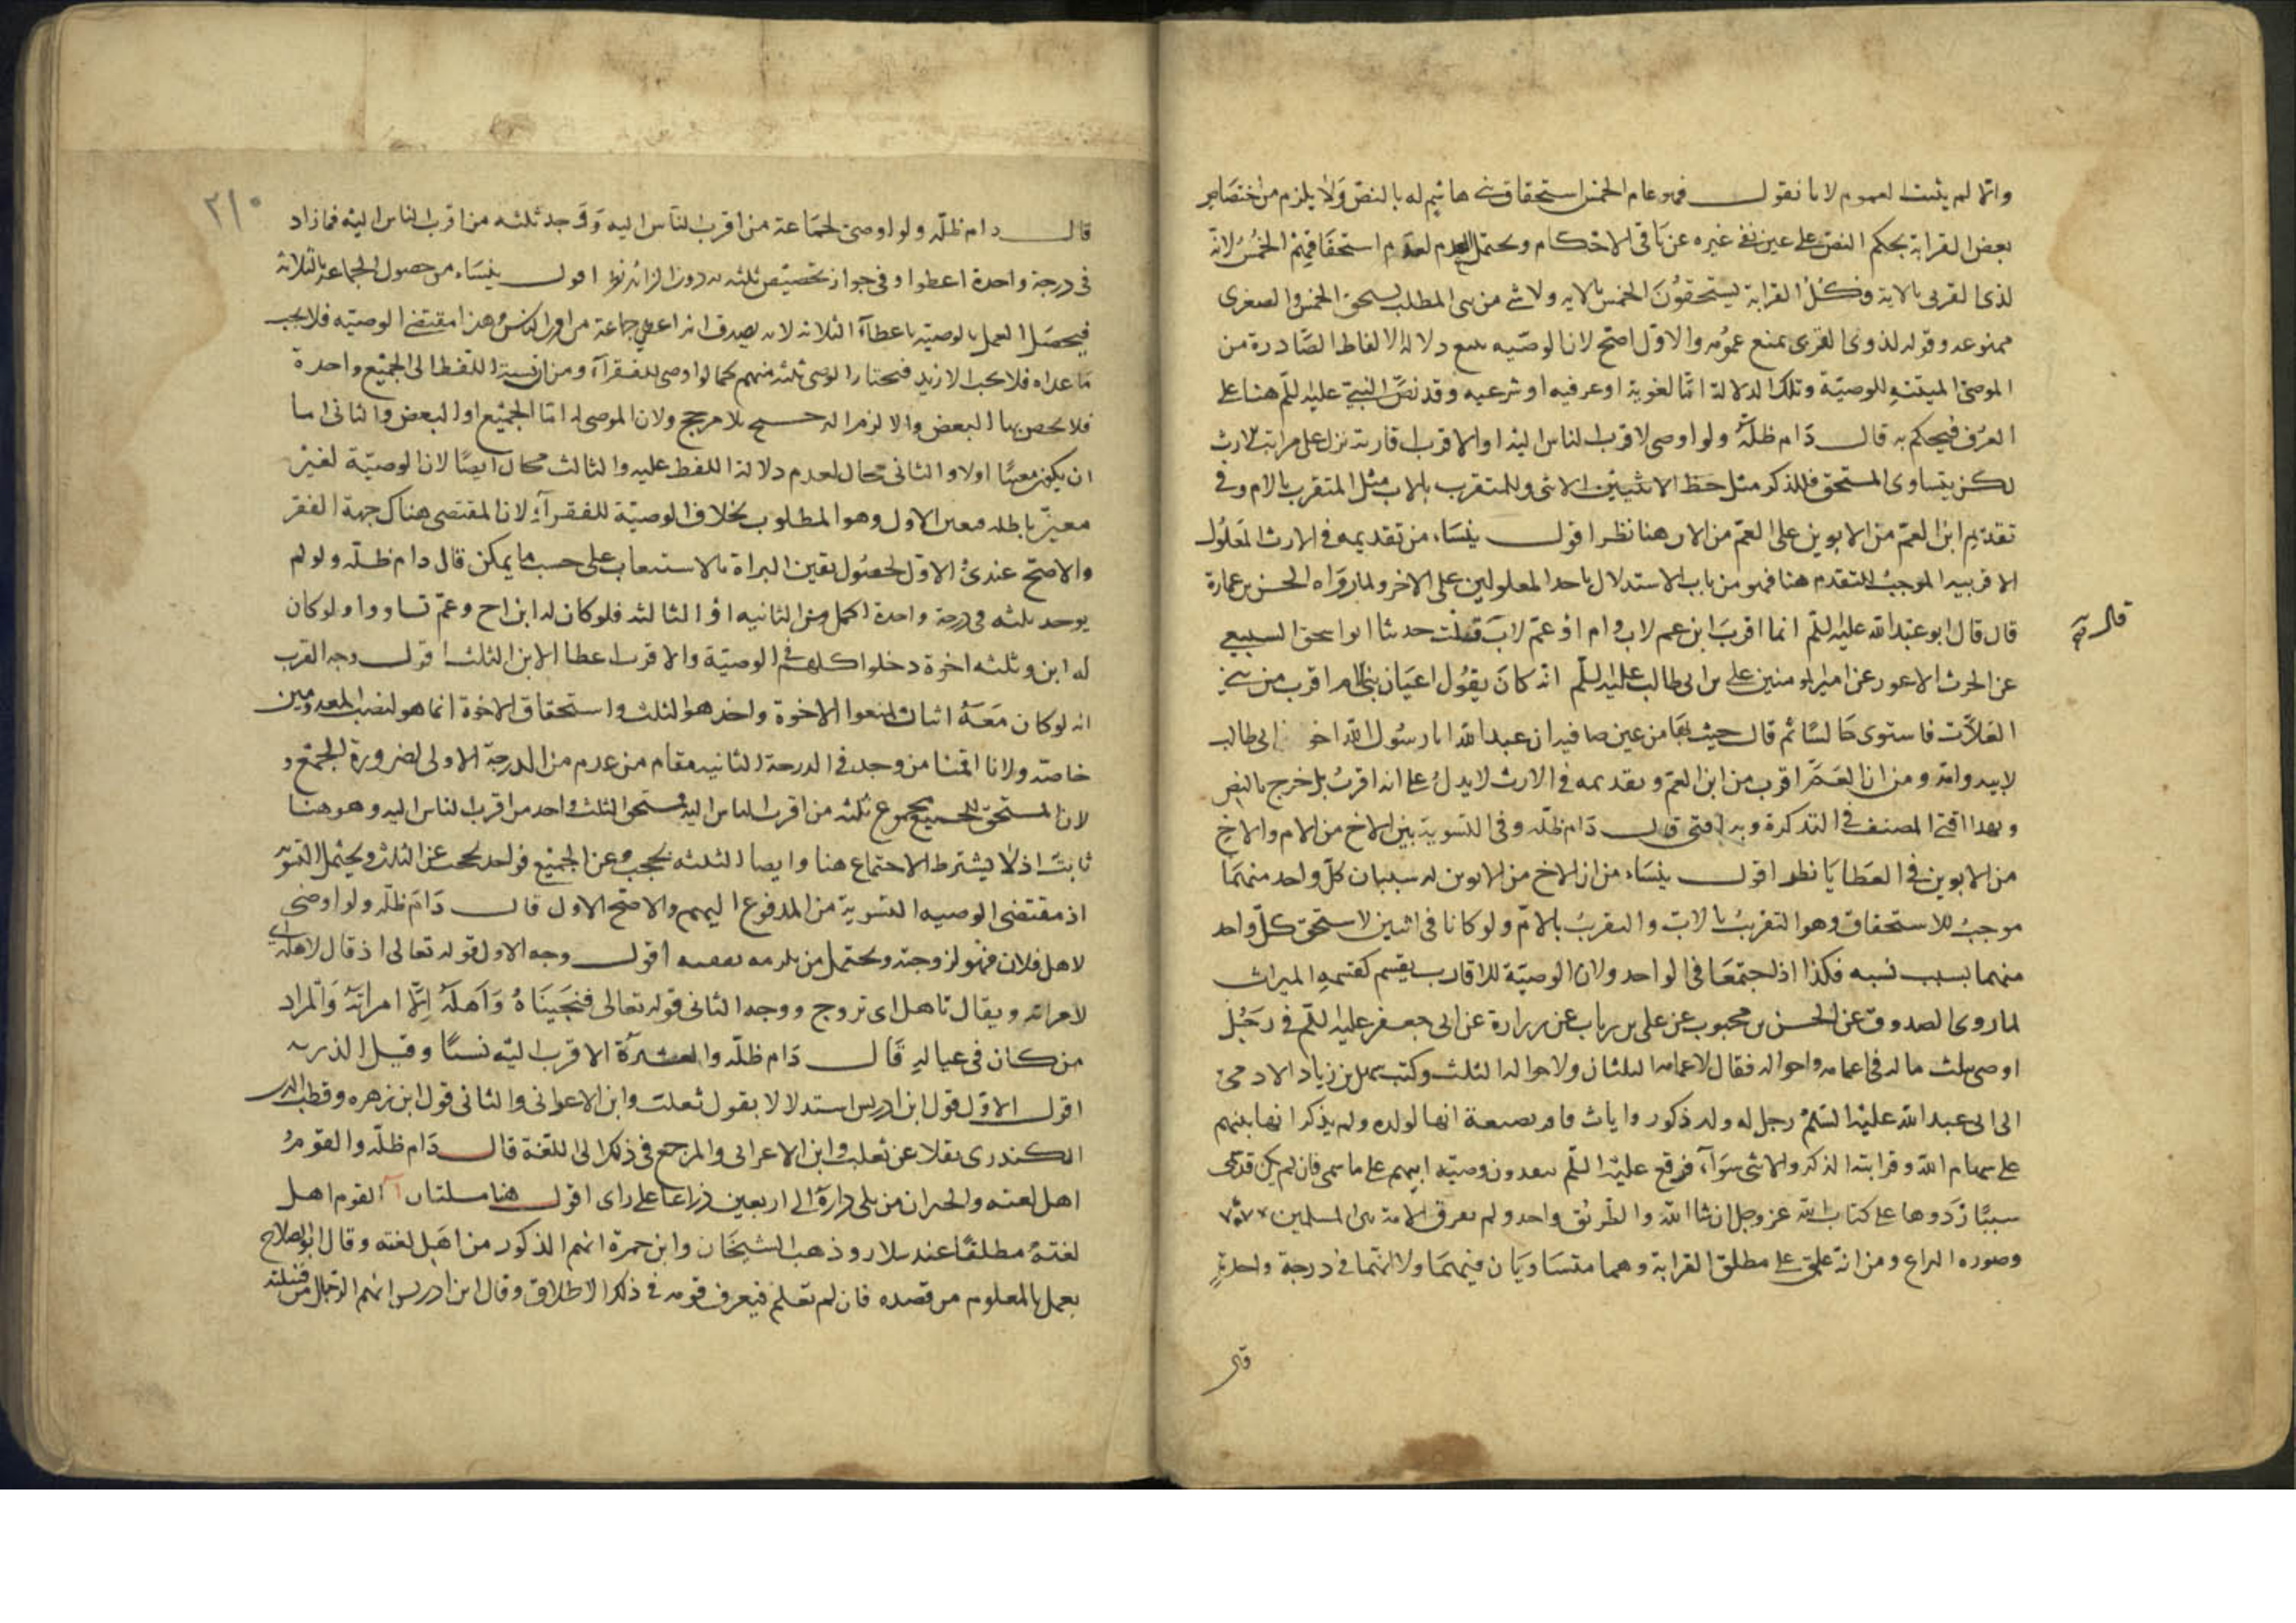 وانما لم يثبت العموم لانا نقول فهو عام الخمس استحقاق بني هاشم له بالنص ولا يلزم من اختصاص
بعض القرابة بحكم النص على عين نفي غيره عن باقي الاحكام ويحتمل العدم لعدم استحقاقهم الخمس لانه
لذي القربى بالاية وكل القرابة يستحقون الخمس بالايه ولا شي من بني المطلب يستحق الخمس والصغرى
ممنوعه وقوله لذوي القربى يمنع عمومه والاول اصح لان الوصيه تتبع دلالة الالفاظ الصادرة من
الموصي المبينة للوصية وتلك الدلالة اما لغوية او عرفيه او شرعيه وقد نص النبي عليه السلم هنا على
العرف فيحكم به قال دام ظله ولو اوصى لاقرب الناس اليه او الاقرب اقاربه نزل على مراتب الارث
لكن يتساوى المستحق فللذكر مثل حظ الانثيين الانثى وللمتقرب بالاب مثل المتقرب بالام وفي
تقديم ابن العم من الابوين على العم من الاب هنا نظر اقول ينشاء من تقديمه في الارث المعلول
الاقربيه الموجبة للتقدم هنا فهو من باب الاستدلال باحد المعلولين على الاخر ولما رواه الحسن بن عمارة
قال قال ابو عبد الله عليه السلم انما اقرب ابن عم لاب وام او عم لاب قلت حدثنا ابو اسحق السبيعي
عن الحرث الاعور عن امير المومنين علي بن ابي طالب عليه السلم انه كان يقول اعيان بني الام اقرب من بني
العلات فاستوى جالسا ثم قال جيت بها من عين صافيه ان عبد الله ابا رسول الله اخو ابي طالب
لابيه وامه ومن ان العم اقرب من ابن العم وتقديمه في الارث لا يدل على انه اقرب بل خرج بالنص
وبهذا افتى المصنف في التذكرة وبه افتي قال دام ظله وفي التسوية بين الاخ من الام والاخ
من الابوين في العطايا نظر اقول ينشاء من ان الاخ من الابوين له سببان كل واحد منهما
موجب للاستحقاق وهو التقرب بالاب والتقرب بالام ولو كانا في اثنين لاستحق كل واحد
منهما بسبب نسبه فكذا اذا اجتمعا في الواحد ولان الوصية للاقارب يقسم كقسمه الميراث
لما روى الصدوق عن الحسن بن محبوب عن علي بن رياب عن زرارة عن ابي جعفر عليه السلم في رجل
اوصى بثلث ماله في اعمامه واخواله فقال لاعمامه الثلثان ولاخواله الثلث وكتب سهل بن زياد الادمي
الى ابي عبد الله عليه السلم رجل له ولد ذكور واناث فاقر بضيعة انها لولده ولم يذكر انها بينهم
على سهام الله وقرابته الذكر والانثى سوآء فوقع عليه السلم ينفذون وصيته ابيهم على ما سمى فان لم يكن قد سمى
شيئا ردوها على كتاب الله عز وجل ان شا الله والطريق واحد ولم يفرق الامة بين المسلمين
وصوره النزاع ومن انه علق على مطلق القرابة وهما متساويان فيهما ولانهما في درجة واحدة
قال
٢١٠
قال دام ظله ولو اوصى لجماعة من اقرب الناس اليه وقد وجد ثلثه من اقرب الناس اليه فما زاد
في درجة واحدة اعطوا وفي جواز تخصيص ثلثه به دون الزائد نظر اقول ينشاء من حصول الجماعه بالثلاثه
فيحصل العمل بالوصية باعطاء الثلاثه لانه يصدق انه اعطي جماعة من اقرب الناس وهذا مقتضى الوصيه فلا يجب
ما عداه فلا يجب الازيد فيختار الوصي ثلثه منهم كما لو اوصى للفقرآء ومن ان نسبة اللفظ الى الجميع واحدة
فلا يختص بها البعض والا لزم الترجيح بلا مرجح ولان الموصى له اما الجميع او البعض والثاني اما
ان يكون معينا اولا والثاني محال لعدم دلالة اللفظ عليه والثالث محال ايضا لان الوصية لغير
معين باطله فتعين الاول وهو المطلوب بخلاف الوصية للفقرآء لان المقتضى هناك جهة الفقر
والاصح عندي الاول لحصول يقين البراة بالاستيعاب على حسب ما يمكن قال دام ظله ولو لم
يوجد ثلثه في درجة واحدة اكمل من الثانيه او الثالثه فلو كان له ابن اخ وعم تساووا ولو كان
له ابن وثلثه اخوة دخلوا كلهم في الوصية والاقرب اعطا الابن الثلث اقول وجه القرب
انه لو كان معه اثنان لمنعوا الاخوة واخذ هو الثلث واستحقاق الاخوة انما هو لنصيب المعدومين
خاصة ولانا اقمنا من وجد في الدرجة الثانيه مقام من عدم من الدرجة الاولى لضرورة الجمع و
لان المستحق للجميع مجموع ثلثه من اقرب الناس اليه فيستحق الثلث واحد من اقرب الناس اليه وهو هنا
ثابت اذ لا يشترط الاجتماع هنا وايضا الثلثه تحجب عن الجميع فواحد يحجب عن الثلث ويحتمل التسوية
اذ مقتضى الوصيه التسوية من المدفوع اليهم والاصح الاول قال دام ظله ولو اوصى
لاهل فلان فهو لزوجته ويحتمل من يلزمه نفقته اقول وجه الاول قوله تعالى اذ قال لاهله اي
لامراته ويقال تاهل اي تزوج ووجه الثاني قوله تعالى فنجيناه واهله الا امراته والمراد
من كان في عياله قال دام ظله والعشيرة الاقرب اليه نسبا وقيل الذريه
اقول الاول قول ابن ادريس استدلالا بقول ثعلب وابن الاعرابي والثاني قول ابن زهره وقطب الدين
الكندري نقلا عن ثعلب وابن الاعرابي والمرجع في ذلك الى اللغة قال دام ظله والقوم
اهل لغته والجيران من يلي داره الى اربعين ذراعا على راي اقول هنا مسلتان آ القوم اهل
لغته مطلقا عند سلار وذهب الشيخان وابن حمزة انهم الذكور من اهل لغته وقال ابو الصلاح
يعمل بالمعلوم من قصده فان لم تعلم فيعرف قومه في ذلك الاطلاق وقال ابن ادريس انهم الرجال من قبيلته